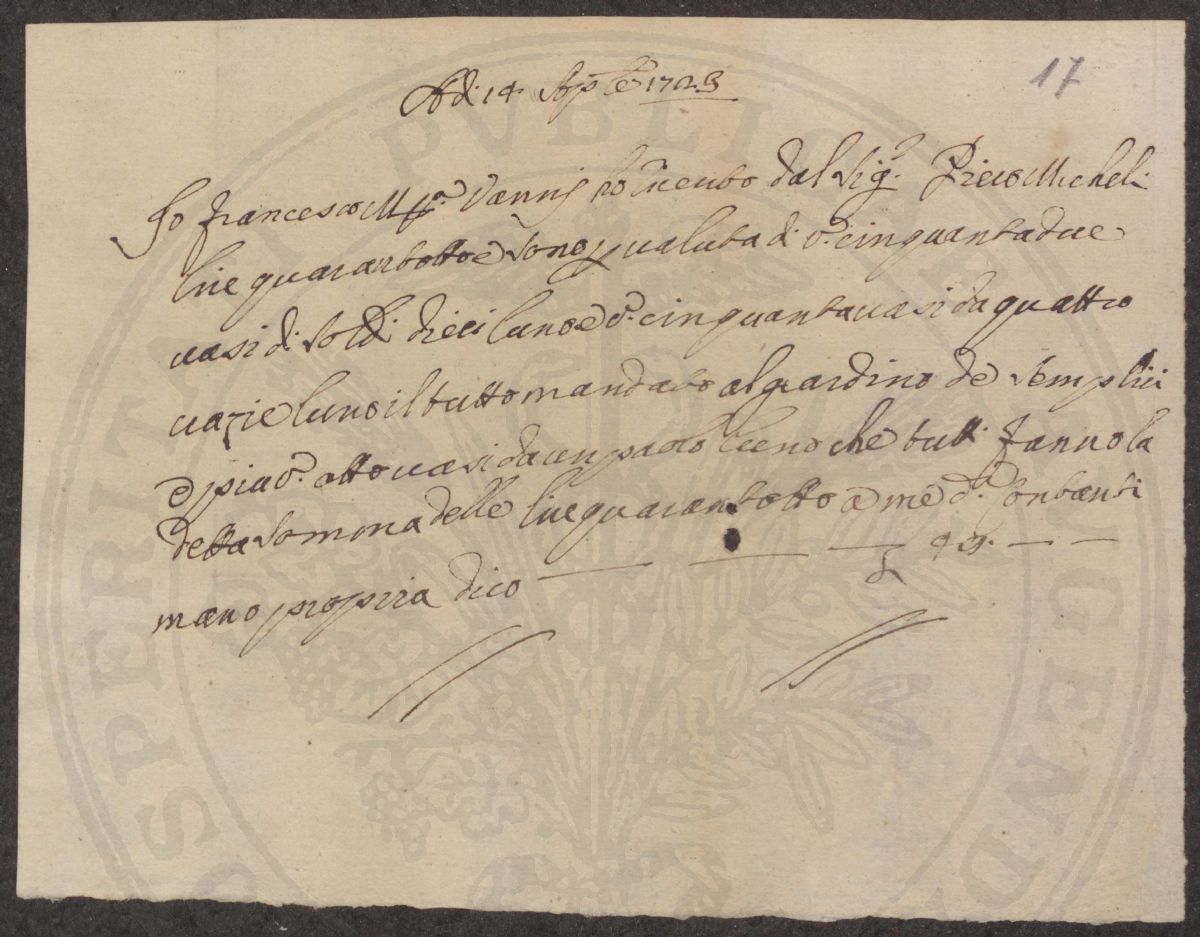 17
Adi 14 Sp.bre 1723
Io Francesco M.a Vannij ho riceuto dal Sig.r Piero Micheli
lire quarantotto e sono p valuta di n.o cinquantadue
vasi di soldi dieci luno e n.o cinquanta vasi da quattro
crazie luno il tutto mandato al giardino de semplici
e piu n.o otto vasi da un paolo luno che tutti fanno la
detta somma delle lire quarantotto a me d.i contanti
mano propria dico — — — £ 48. — —
PVBLICAE
PROSPERITATI
AVGENDAE